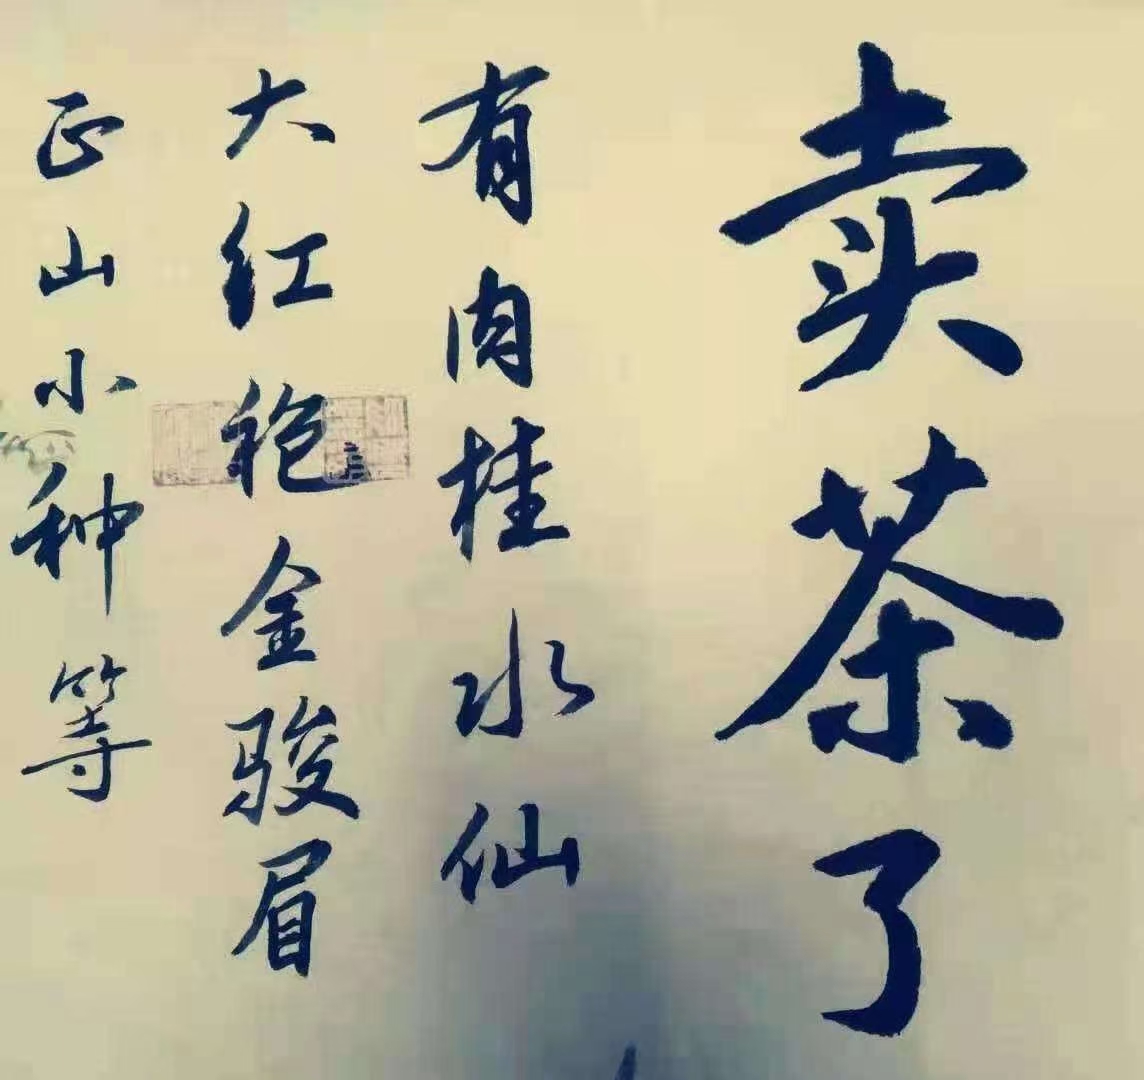 卖茶了
有肉桂水仙
大红袍金骏眉
正山小种等